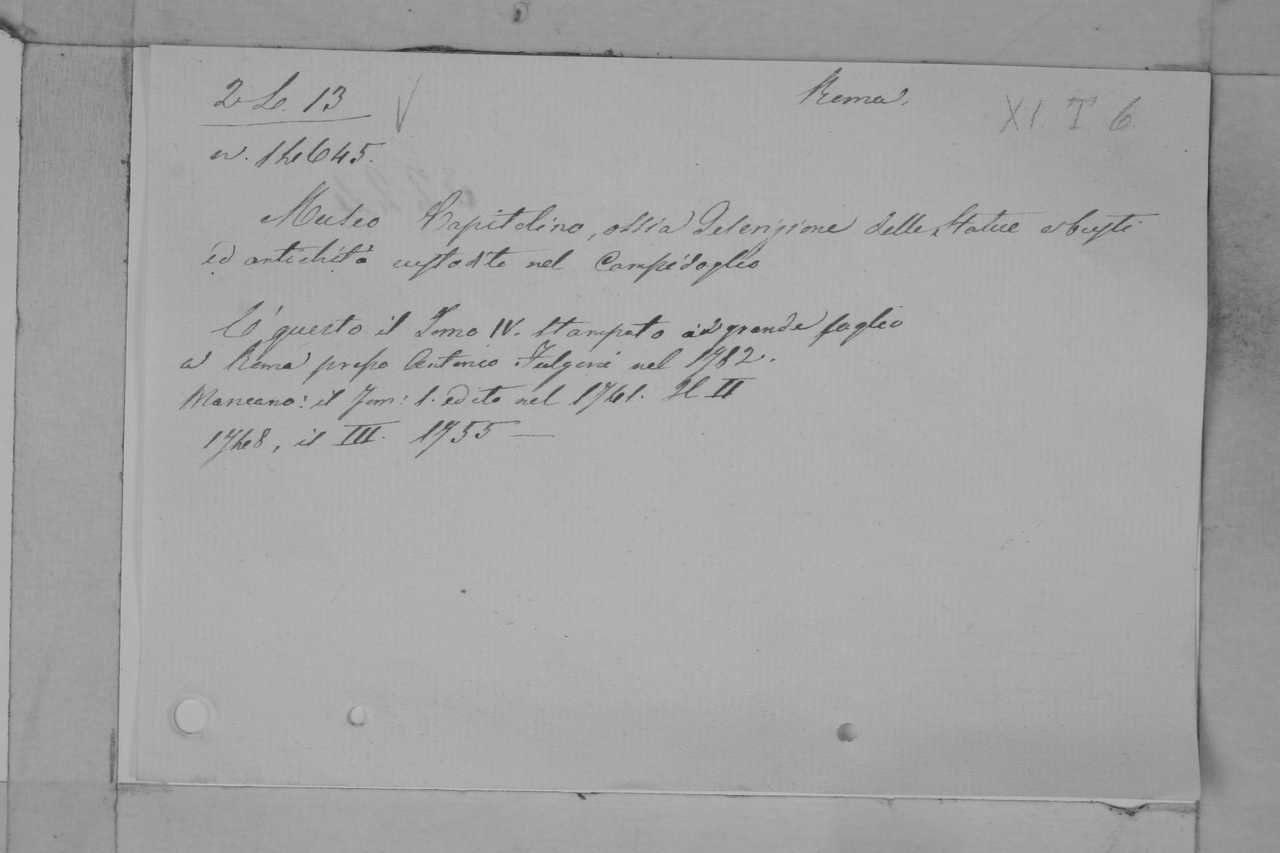 2. L. 13
Roma.
XI. T 6
n. 14645.
Museo Capitolino, ossia Descrizione delle Statue e busti
ed antichità custodite nel Campidoglio
E' questo il Tomo IV. Stampato in grande foglio
a Roma presso Antonio Fulgoni nel 1782.
Mancano: il Tom: 1. edito nel 1741. Il II
1748, il III. 1755 —